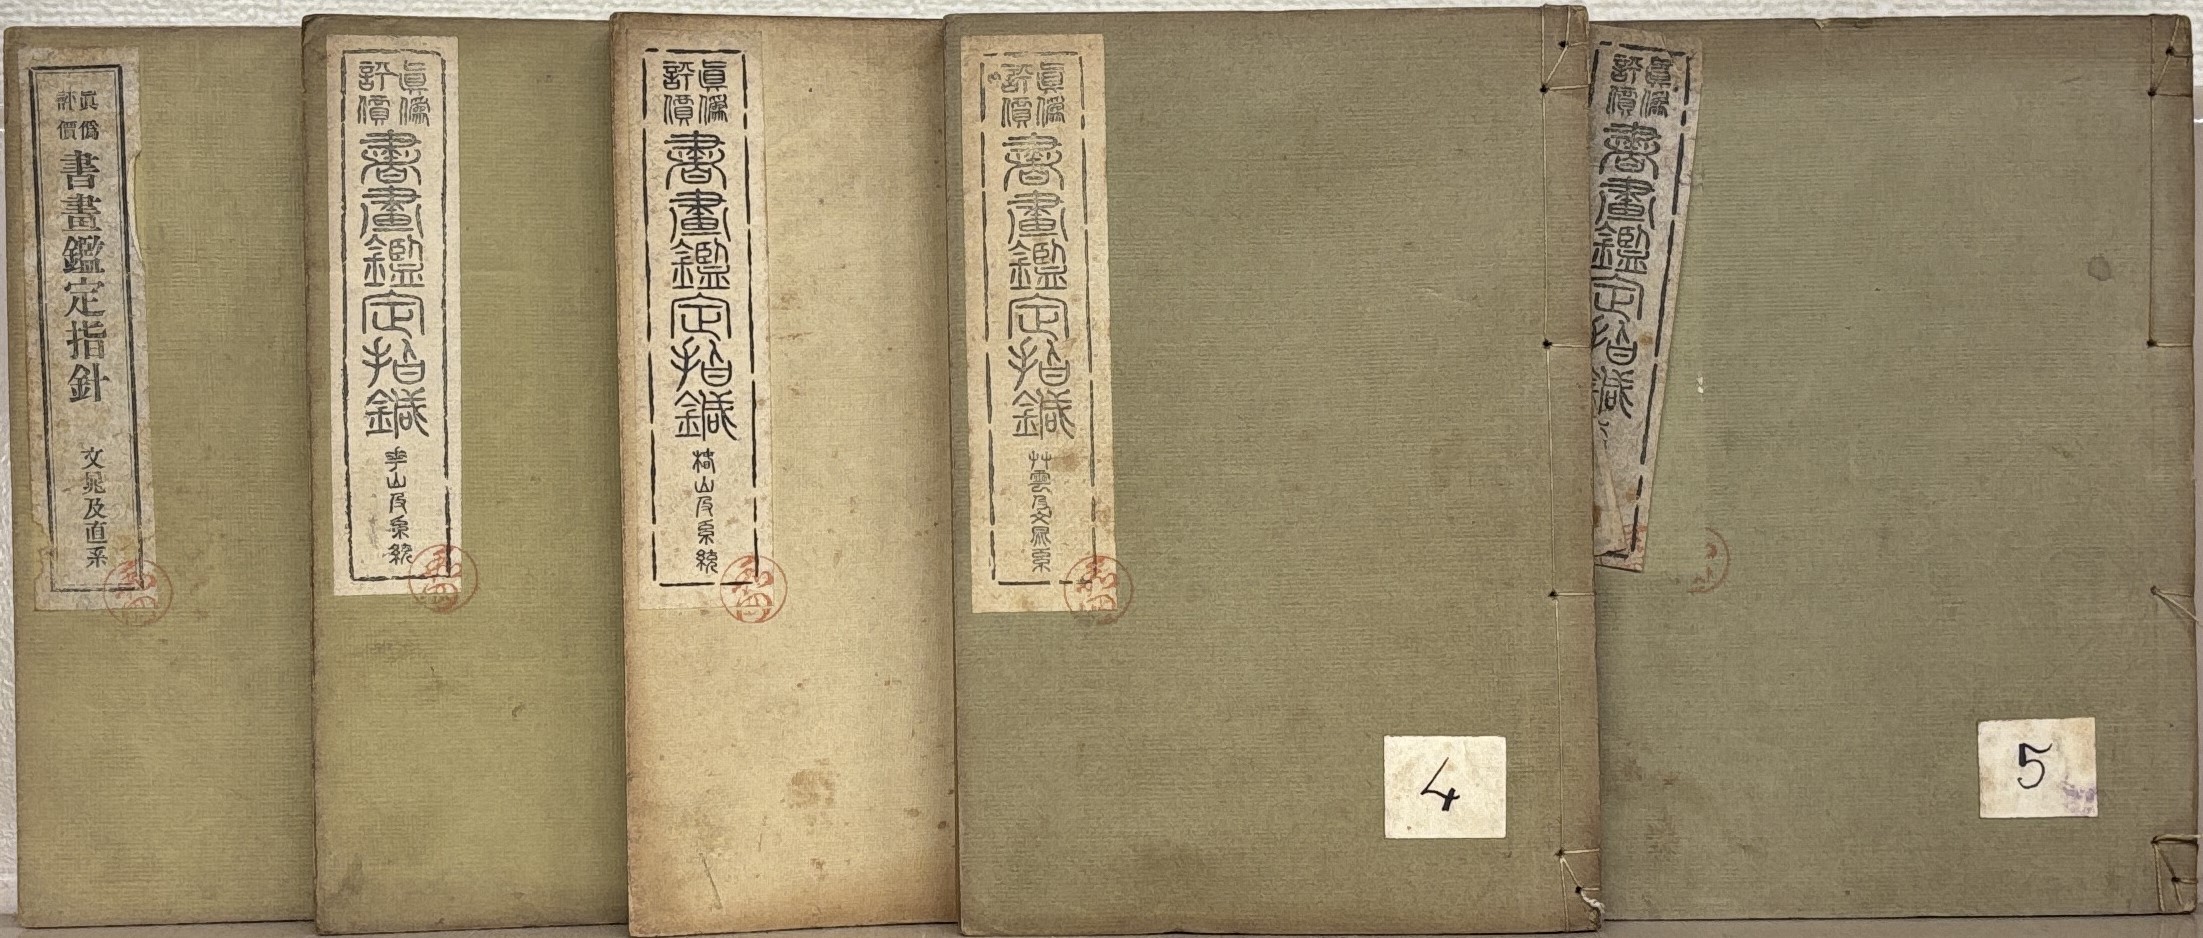 眞僞
評價
書畫鑑定指針
文晁及直系
眞僞
評價
書畫鑑定指鍼
崋山及系統
眞僞
評價
書畫鑑定指鍼
椿山及系統
眞僞
評價
書畫鑑定指鍼
艸雲及文晁系
4
眞僞
評價
書畫鑑定指鍼
5